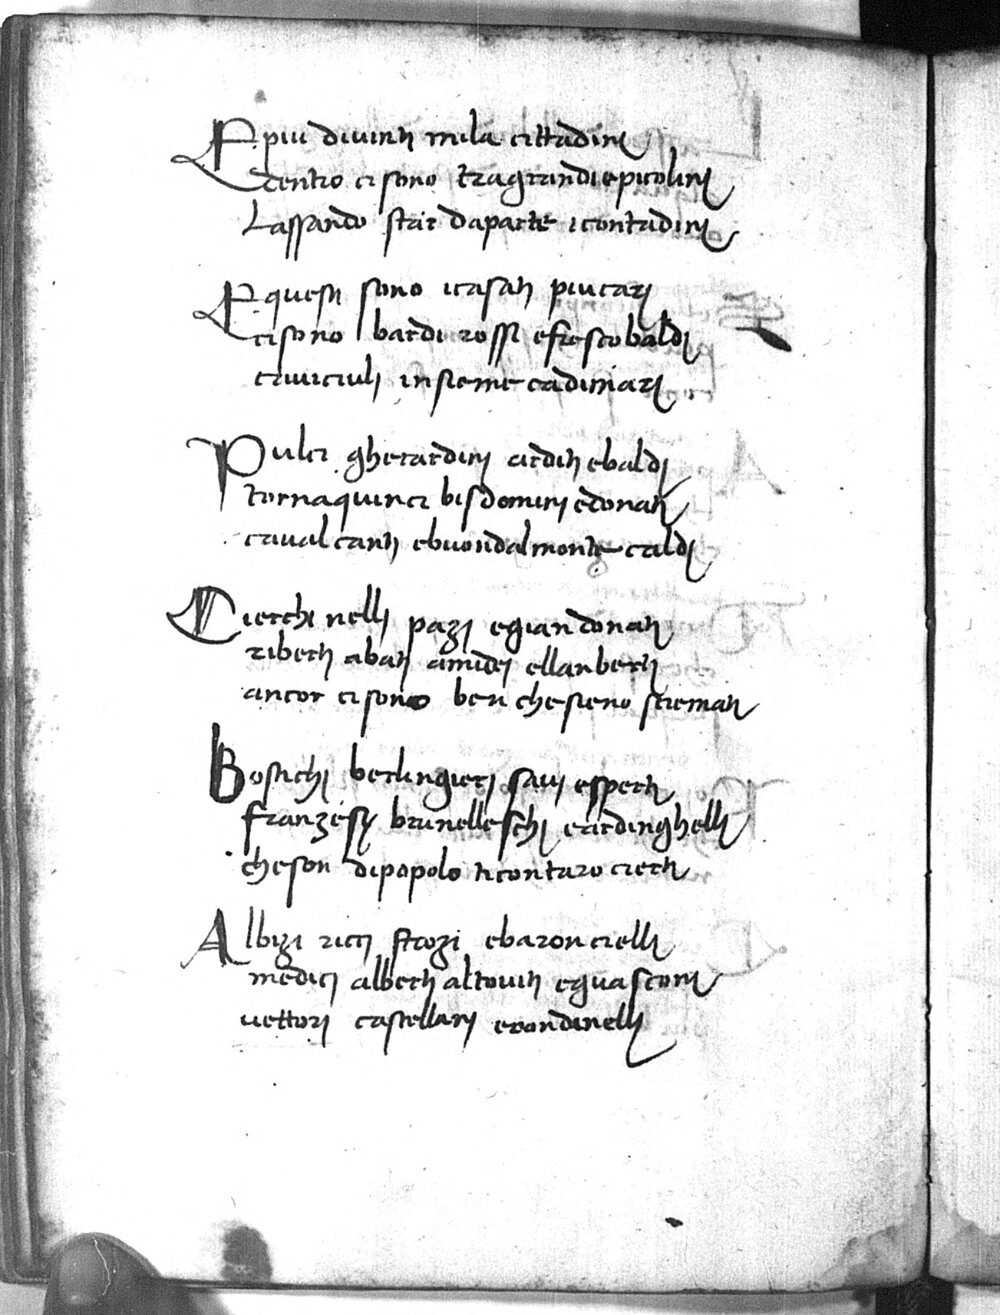 E piu diventi mila cittadini
dentro ci sono tra grandi e picolini
Lassando star daparte i contadini
E questi sono icasati piu cari
ci sono bardi rossi e frescobaldi
criviciuli insieme cadimari
Pulci gherardini arditi ebaldi
tornaquinci bisdomini edonati
cavalcanti ebuondalmonte caldi
Cierchi nelli pazi egiandonati
ribeti abati amidei ellanberti
ancor ci sono ben che sieno stremati
Bostichi berlingieri savi esperti
franzesi brunelleschi erardinghelli
che son dipopolo ticontaro cierti
Albizi ricci strozi ebaroncielli
medici alberti altoviti eguasconi
vettori castellani erondinelli